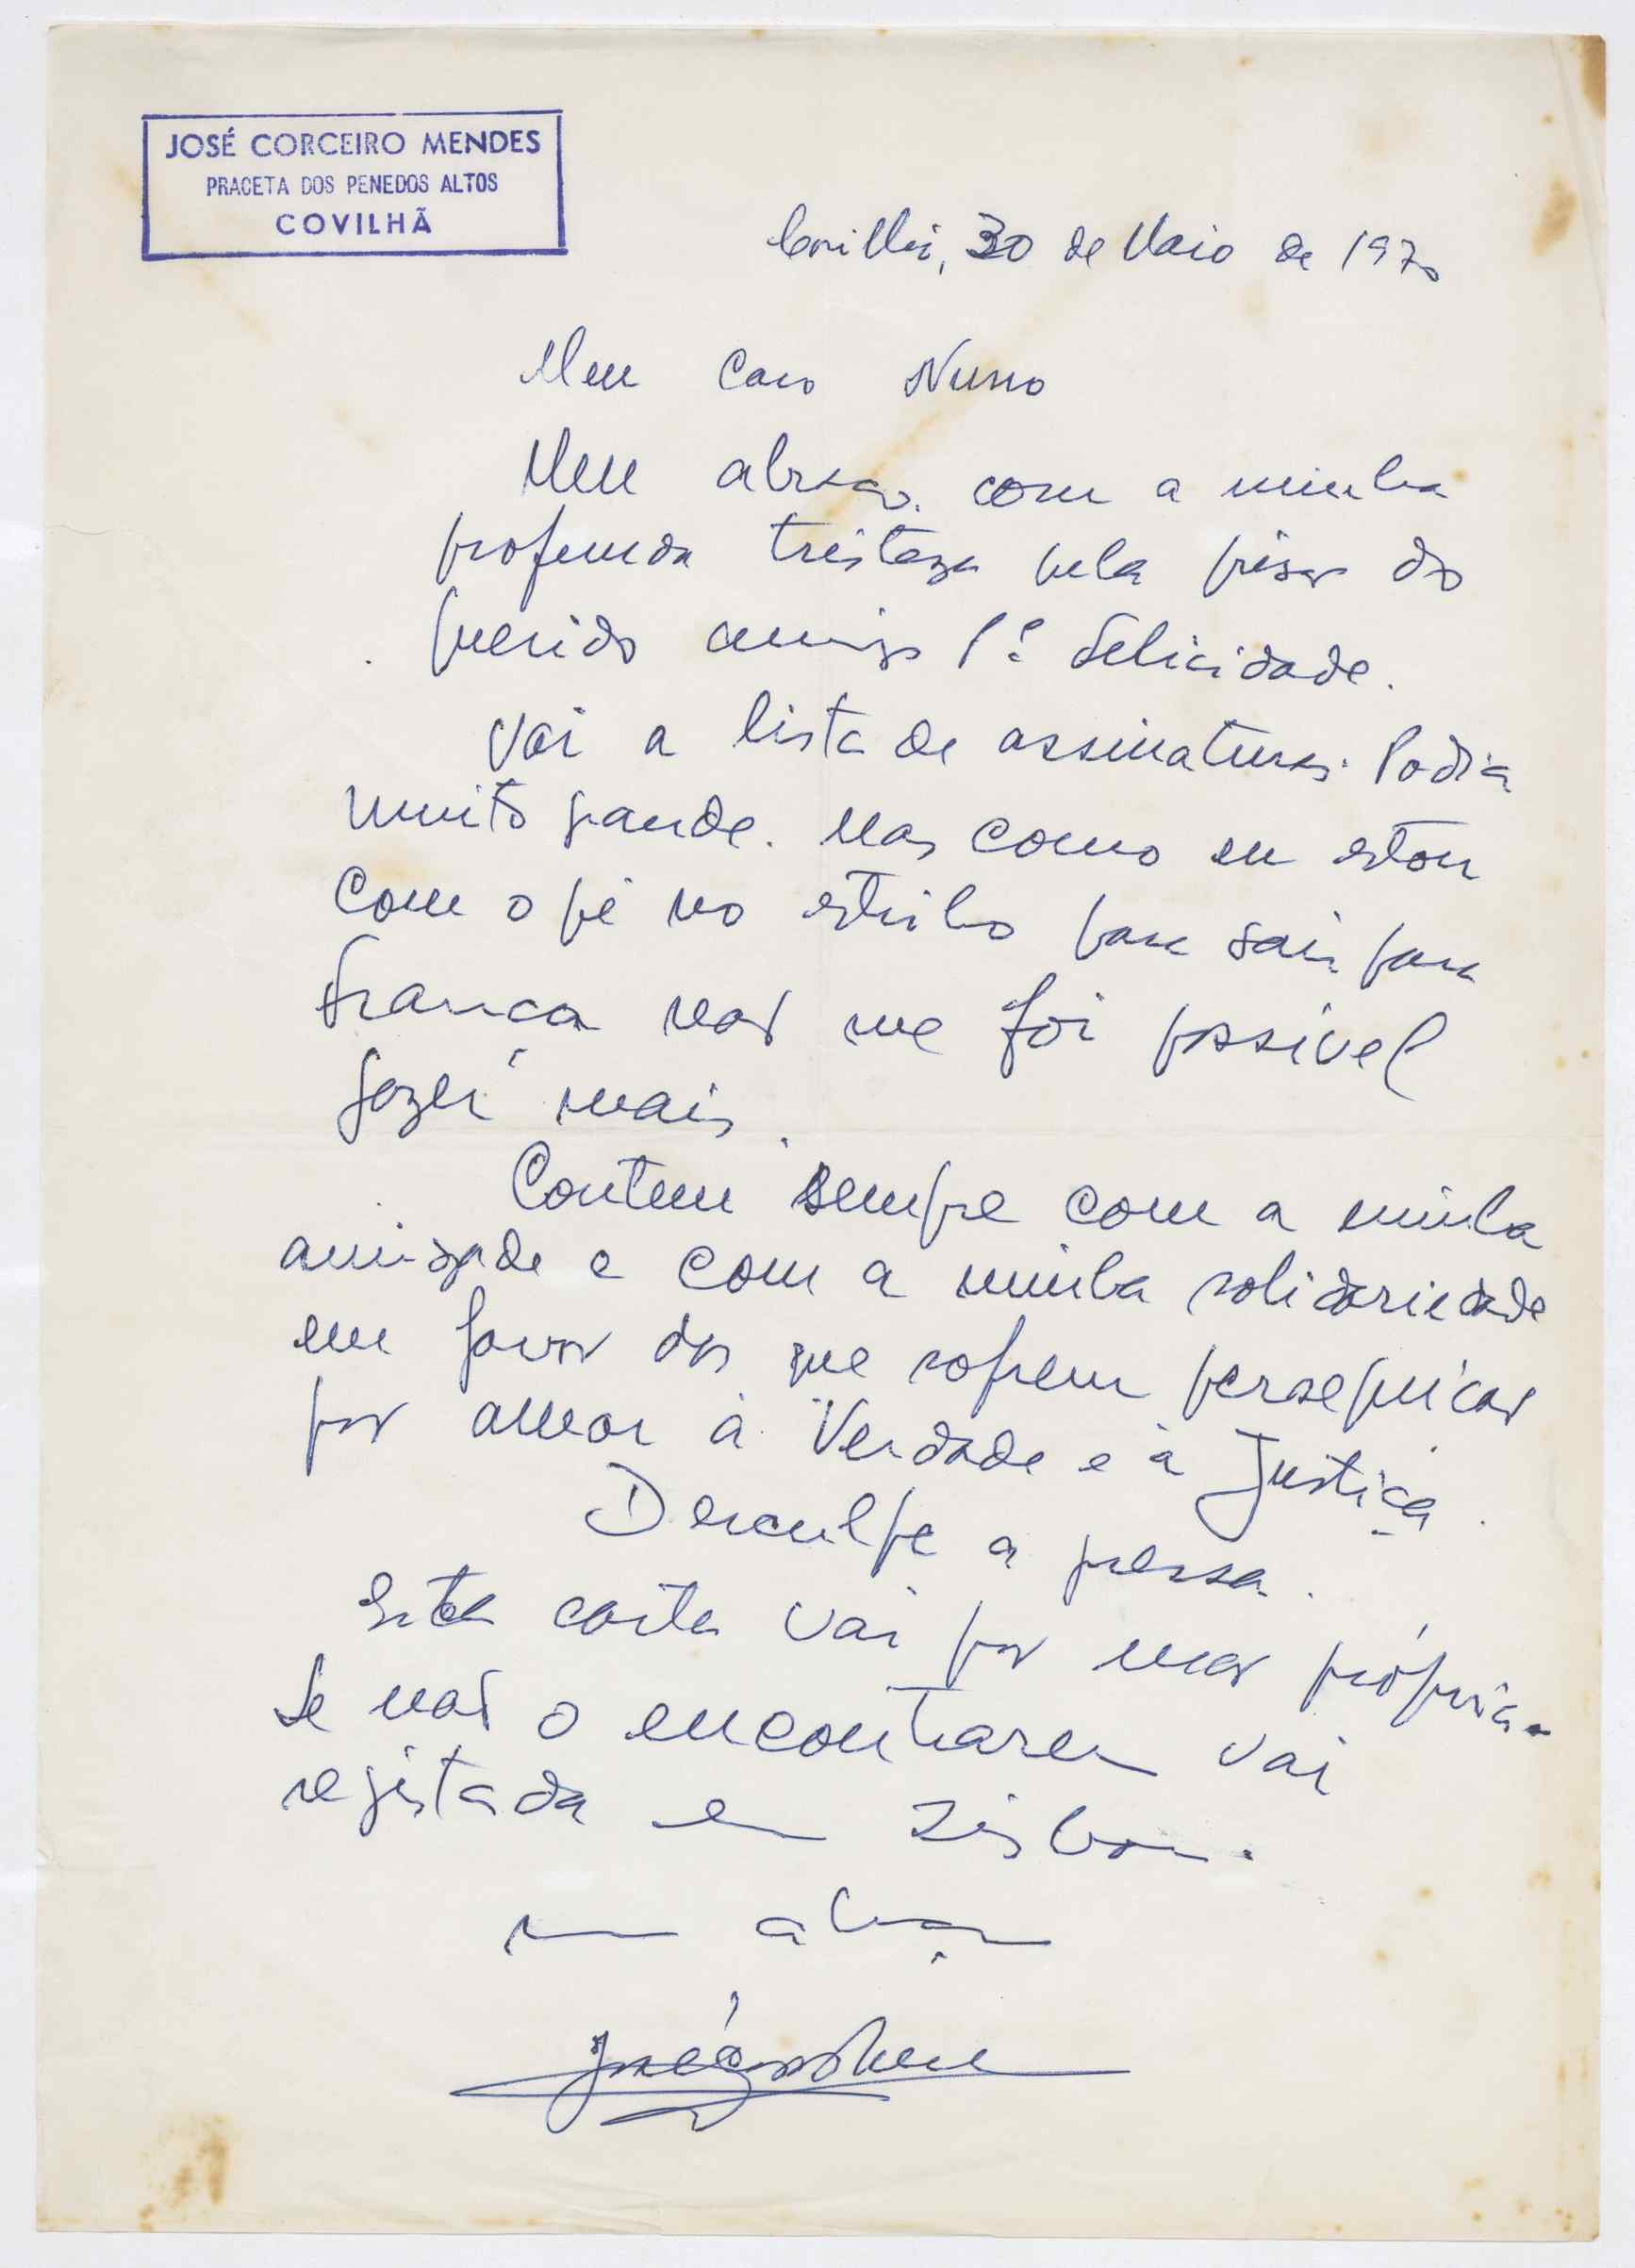 JOSÉ CORCEIRO MENDES
PRACETA DOS PENEDOS ALTOS
COVILHÃ
Covilhã, 30 de Maio de 1970
Meu Caro Nuno
Meu abraço com a minha
profunda tristeza pela prisão do
querido amigo P.e Felicidade.
Vai a lista de assinaturas. Podia
muito grande. Mas como eu estou
com o pé no estribo para sair para
França não me foi possível
fazer mais.
Contem sempre com a minha
amizade e com a minha solidariedade
em favor dos que sofrem perseguição
por amor à Verdade e à Justiça.
Desculpe a pressa.
Esta carta vai por mão própria.
Se não o encontrarem vai
registada em Lisboa.
um abraço